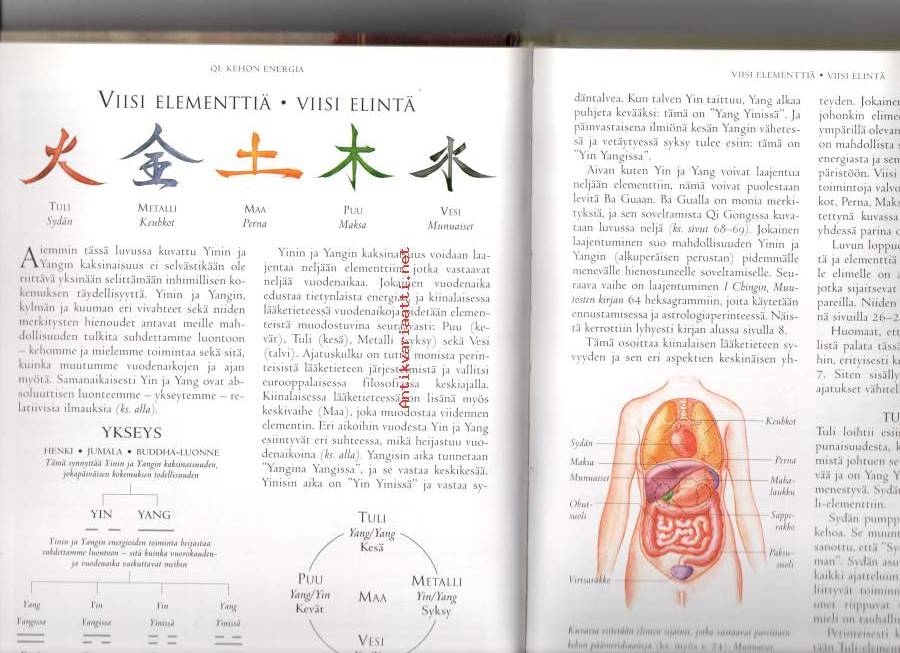 QI: KEHON ENERGIA
VIISI ELEMENTTIÄ • VIISI ELINTÄ
火 金 土 木 水
TULI METALLI MAA PUU VESI
Sydän Keuhkot Perna Maksa Munuaiset
Aiemmin tässä luvussa kuvattu Yinin ja
Yangin kaksinaisuus ei selvästikään ole
riittävä yksinään selittämään inhimillisen ko-
kemuksen täydellisyyttä. Yinin ja Yangin,
kylmän ja kuuman eri vivahteet sekä niiden
merkitysten hienoudet antavat meille mah-
dollisuuden tulkita suhdettamme luontoon
– kehomme ja mielemme toimintaa sekä sitä,
kuinka muutumme vuodenaikojen ja ajan
myötä. Samanaikaisesti Yin ja Yang ovat ab-
soluuttisen luonteemme – ykseytemme – re-
latiivisia ilmauksia (ks. alla).
YKSEYS
HENKI • JUMALA • BUDDHA-LUONNE
Tämä synnyttää Yinin ja Yangin kaksinaisuuden,
jokapäiväisen kokemuksen todellisuuden
YIN YANG
Yinin ja Yangin energioiden toiminta heijastaa
suhdettamme luontoon – sitä kuinka vuorokauden-
ja vuodenaika vaikuttavat meihin
Yang Yin Yin Yang
Yangissa Yangissa Yinissä Yinissä
Yinin ja Yangin kaksinaisuus voidaan laa-
jentaa neljään elementtiin, jotka vastaavat
neljää vuodenaikaa. Jokainen vuodenaika
edustaa tietynlaista energiaa, ja kiinalaisessa
lääketieteessä vuodenaikoja
teistä muodostuvina seuraavasti: Puu (ke-
vät), Tuli (kesä), Metalli (syksy) sekä Vesi
(talvi). Ajatuskulku on tuttu monista perin-
teisistä lääketieteen järjestelmistä ja vallitsi
eurooppalaisessa filosofiassa keskiajalla.
Kiinalaisessa lääketieteessä on lisänä myös
keskivaihe (Maa), joka muodostaa viidennen
elementin. Eri aikoihin vuodesta Yin ja Yang
esiintyvät eri suhteessa, mikä heijastuu vuo-
denaikoina (ks. alla). Yangisin aika tunnetaan
"Yangina Yangissa", ja se vastaa keskikesää.
Yinisin aika on "Yin Yinissä" ja vastaa sy-
TULI
Yang/Yang
Kesä
PUU
Yang/Yin
Kevät
MAA
METALLI
Yin/Yang
Syksy
VESI
Antikvariaatti.net
VIISI ELEMENTTIÄ • VIISI ELINTÄ
däntalvea. Kun talven Yin taittuu, Yang alkaa
puhjeta kevääksi: tämä on "Yang Yinissä". Ja
päinvastaisena ilmiönä kesän Yangin vähetes-
sä ja vetäytyessä syksy tulee esiin: tämä on
"Yin Yangissa".
Aivan kuten Yin ja Yang voivat laajentua
neljään elementtiin, nämä voivat puolestaan
levitä Ba Guaan. Ba Gualla on monia merki-
tyksiä, ja sen soveltamista Qi Gongissa kuva-
taan luvussa neljä (ks. sivut 68–69). Jokainen
laajentuminen suo mahdollisuuden Yinin ja
Yangin (alkuperäisen perustan) pidemmälle
menevälle hienostuneelle soveltamiselle. Seu-
raava vaihe on laajentuminen I Chingin, Muu-
tosten kirjan 64 heksagrammiin, joita käytetään
ennustamisessa ja astrologiaperinteessä. Näis-
tä kerrottiin lyhyesti kirjan alussa sivulla 8.
Tämä osoittaa kiinalaisen lääketieteen sy-
vyyden ja sen eri aspektien keskinäisen yh-
Keuhkot
Sydän
Maksa
Perna
Munuaiset
Maha-
laukku
Ohut-
suoli
Sappi-
rakko
Paksu-
suoli
Virtsarakko
Kuvassa esitetään elinten sijainti, jotka vastaavat parittain
kehon päämeridiaaneja (ks. myös s. 24): Munuaiset,
teyden. Jokainen
johonkin
ympärillä
on mahdollista
energiasta ja sen
päristöön. Viisi
toimintoja
kot, Perna,
tettynä kuvassa
yhdessä parina
Luvun
tä ja
le elimelle on
jotka sijaitsevat
pareilla. Niiden
nä sivuilla
Huomaat,
listä palata
hin, erityisesti
7. Siten
ajatukset
Tuli loihtii
punaisuudesta,
mistä johtuen
vää ja on Yang
menestyvä.
li-elementtiin.
Sydän
kehoa. Se
sanottu, että
man". Sydän
kaikki
liittyvät
unet riippuvat
mieli on
Perinteisesti
tään Tuli-